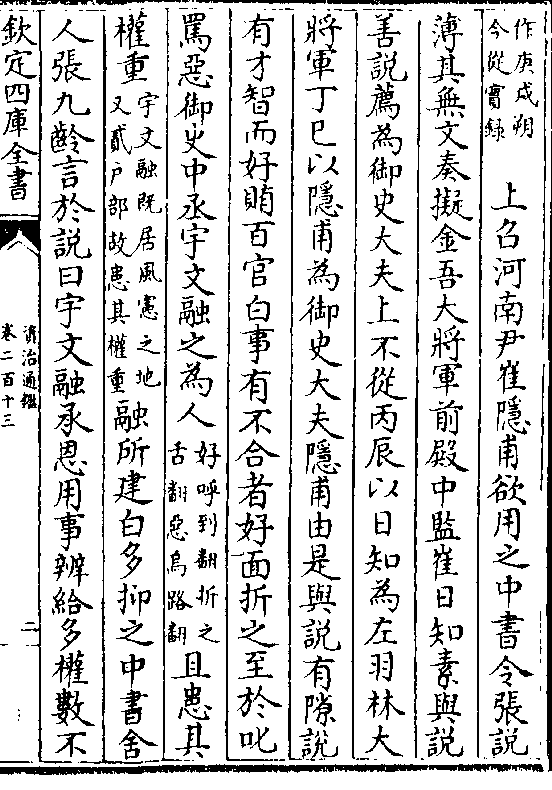 作庚戌朔
今從實録
上召河南尹崔隱甫欲用之中書令張説
薄其無文奏擬金吾大將軍前殿中監崔日知素與説
善説薦為御史大夫上不從丙辰以日知為左羽林大
將軍丁巳以隱甫為御史大夫隱甫由是與説有隙説
有才智而好賄百官白事有不合者好面折之至於叱
罵惡御史中丞宇文融之為人
好呼到翻折之
舌翻惡烏路翻
且患其
權重
宇文融既居風憲之地
又貳户部故患其權重
融所建白多抑之中書舍
人張九齡言於説曰宇文融承恩用事辨給多權數不
欽定四庫全書
資治通鑑
卷二百十三
二